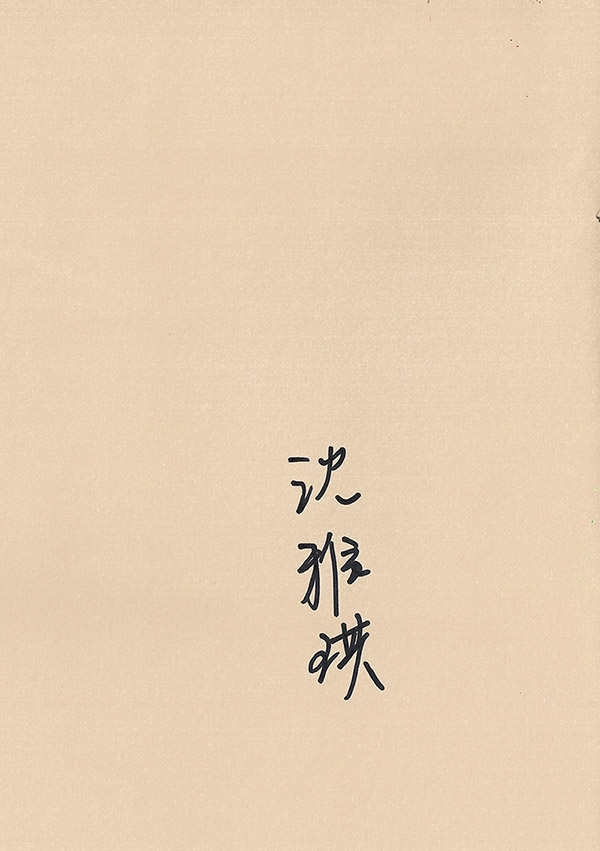 沈雅琪